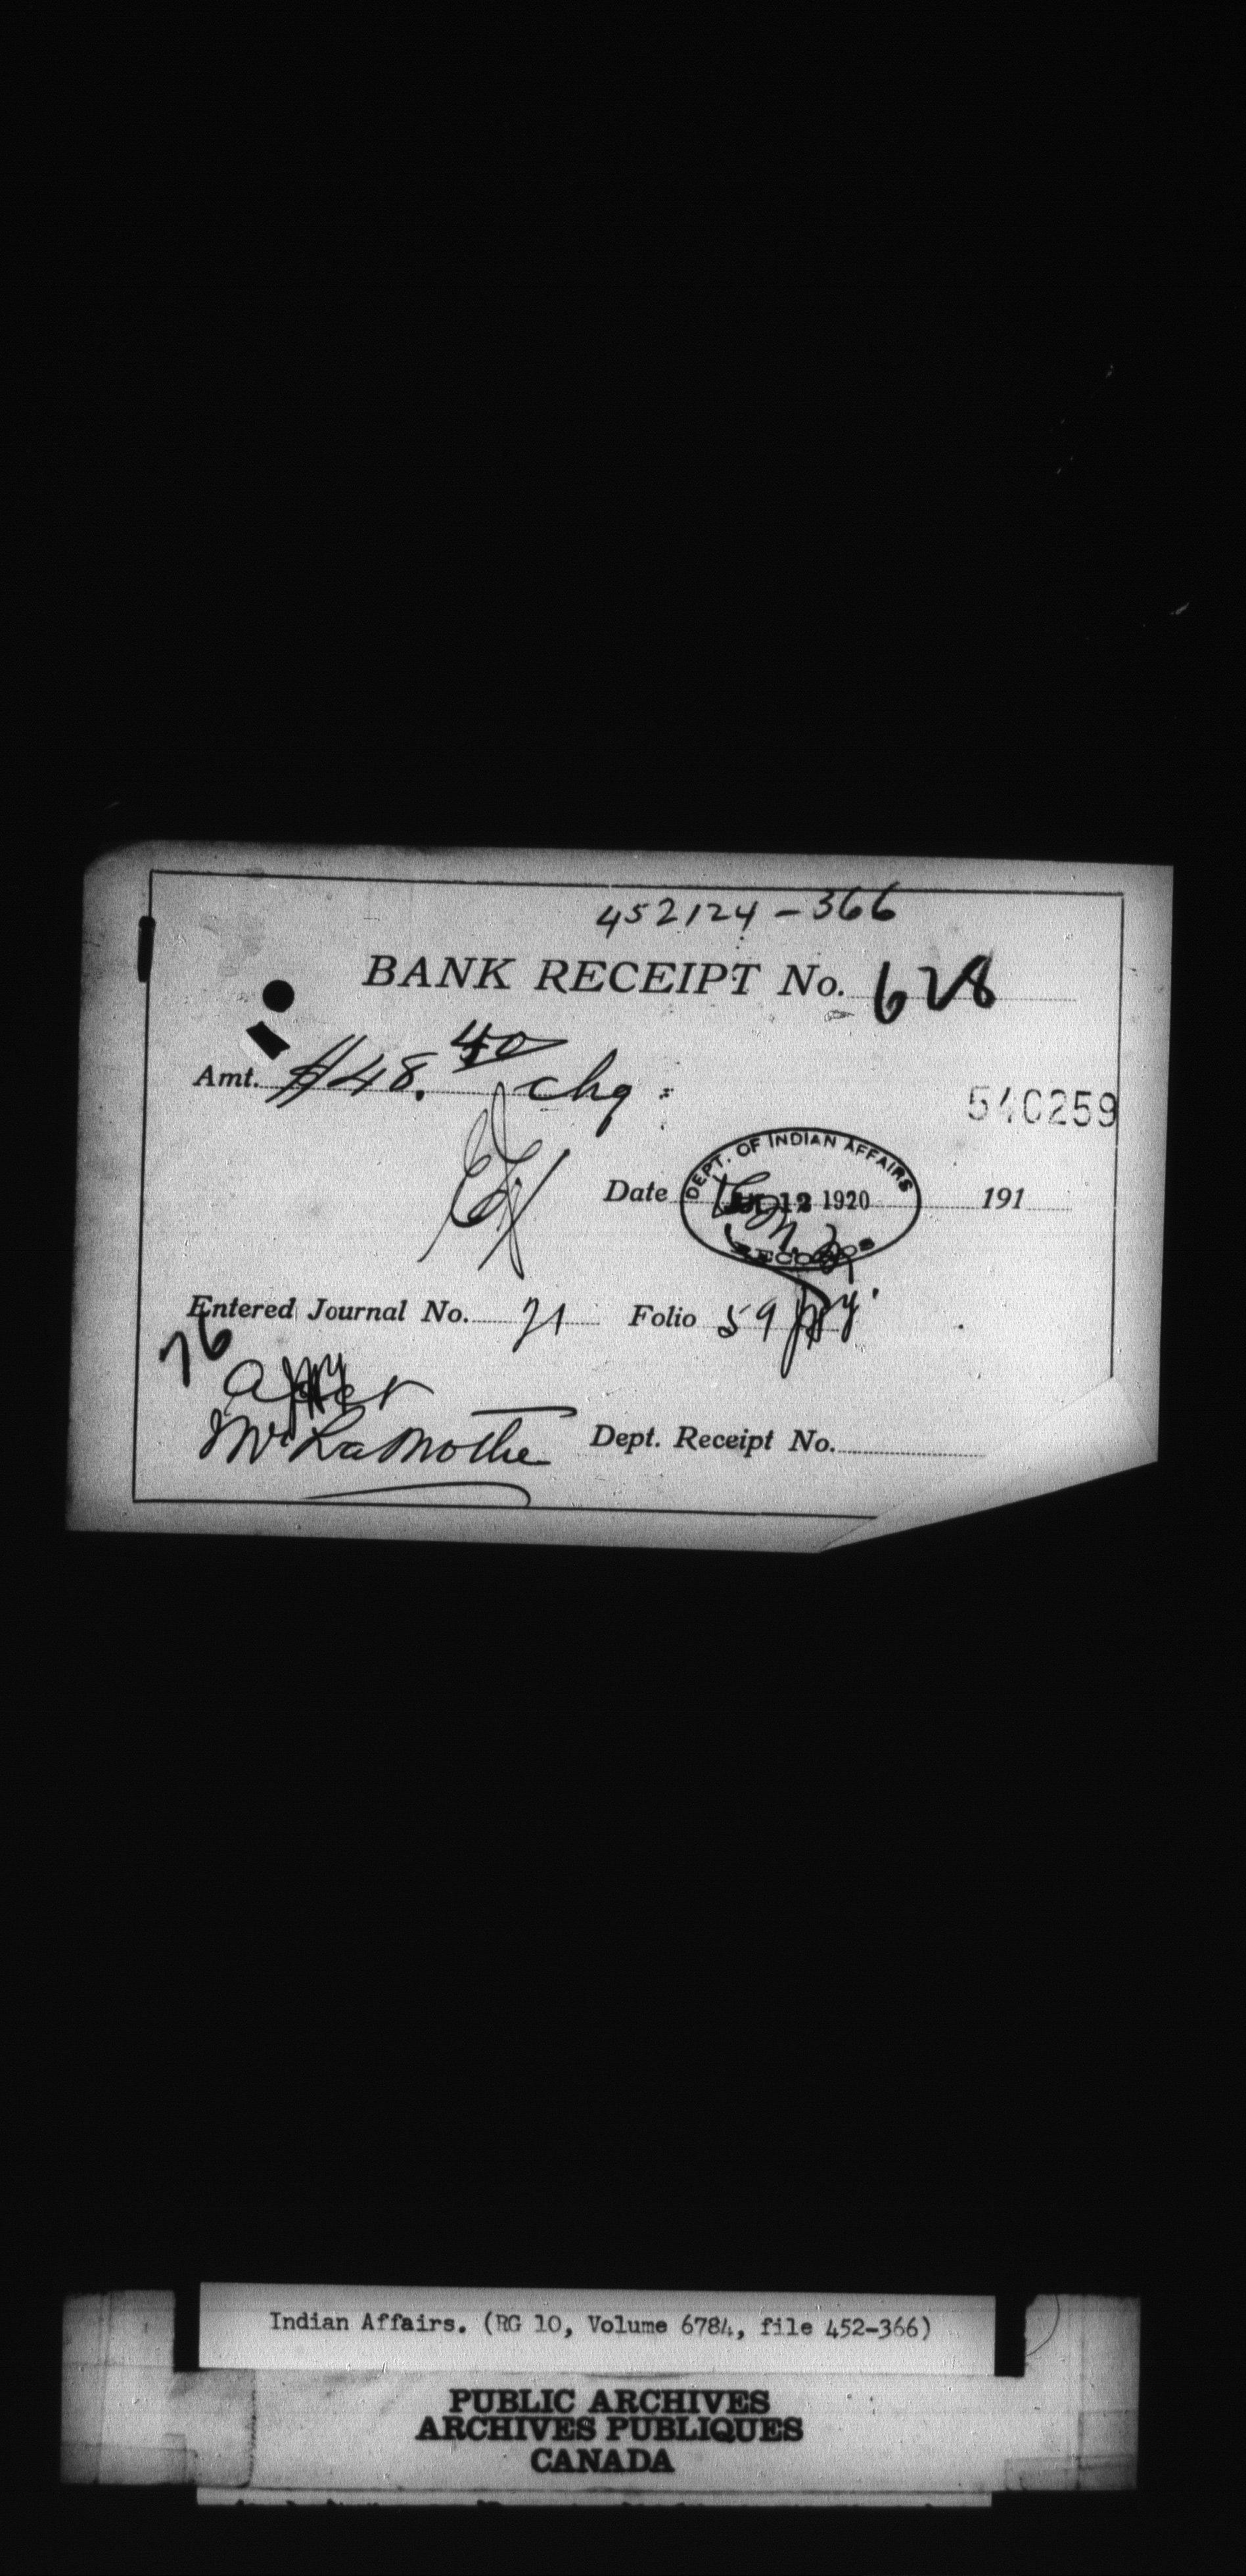 452124-366
BANK RECEIPT No. 628
Amt. $48.40 chq:
540259
DEPT. OF INDIAN AFFAIRS
Date JUL 12 1920 191
RECORDS
Entered Journal No. 71 Folio 59
76
LaMothe Dept. Receipt No.
Indian Affairs. (RG 10, Volume 6784, file 452-366)
PUBLIC ARCHIVES
ARCHIVES PUBLIQUES
CANADA